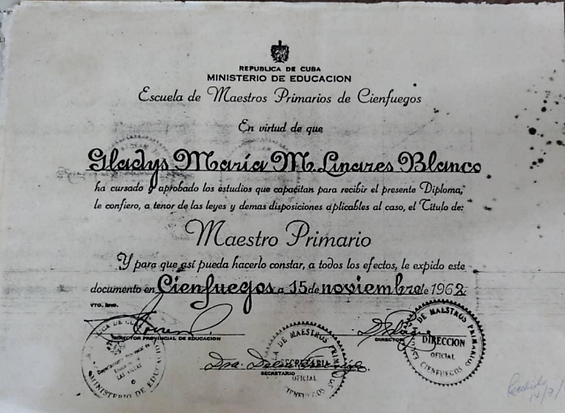 REPUBLICA DE CUBA
MINISTERIO DE EDUCACION
Escuela de Maestros Primarios de Cienfuegos
En virtud de que
Gladys María M. Linares Blanco
ha cursado y aprobado los estudios que capacitan para recibir el presente Diploma,
le confiero, a tenor de las leyes y demas disposiciones aplicables al caso, el Título de:
Maestro Primario
Y para que así pueda hacerlo constar, a todos los efectos, le expido este
documento en Cienfuegos a 15 de noviembre de 1962.
VTO. BNO.
DIRECTOR PROVINCIAL DE EDUCACION
DIRECTOR
SECRETARIO
MINISTERIO DE
LAS VILLAS
DE MAESTROS
SECRETARIA
OFICIAL
CIENFUEGOS
DE MAESTROS PRIMARIOS
DIRECCION
OFICIAL
CIENFUEGOS